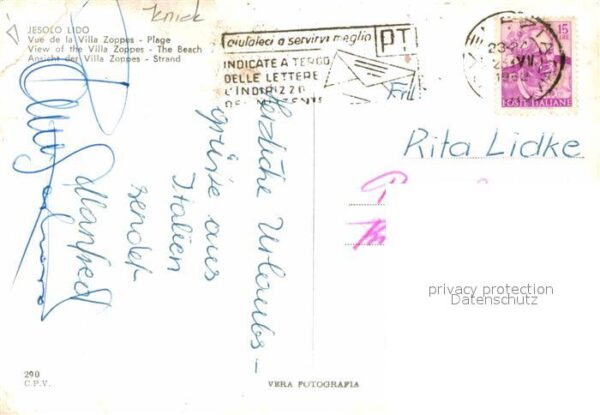 Knick
JESOLO LIDO
Vue de la Villa Zoppes - Plage
View of the Villa Zoppes - The Beach
Ansicht der Villa Zoppes - Strand
aiutateci a servirvi meglio
PT
INDICATE A TERGO
DELLE LETTERE
L'INDIRIZZO
DEL MITTENTE
VENEZIA
23-24
VII
15
LIRE
POSTE ITALIANE
Frl.
Rita Lidke
Herzliche Urlaubs-
grüße aus
Italien
sendet
Manfred
privacy protection
Datenschutz
290
C.P.V.
VERA FOTOGRAFIA